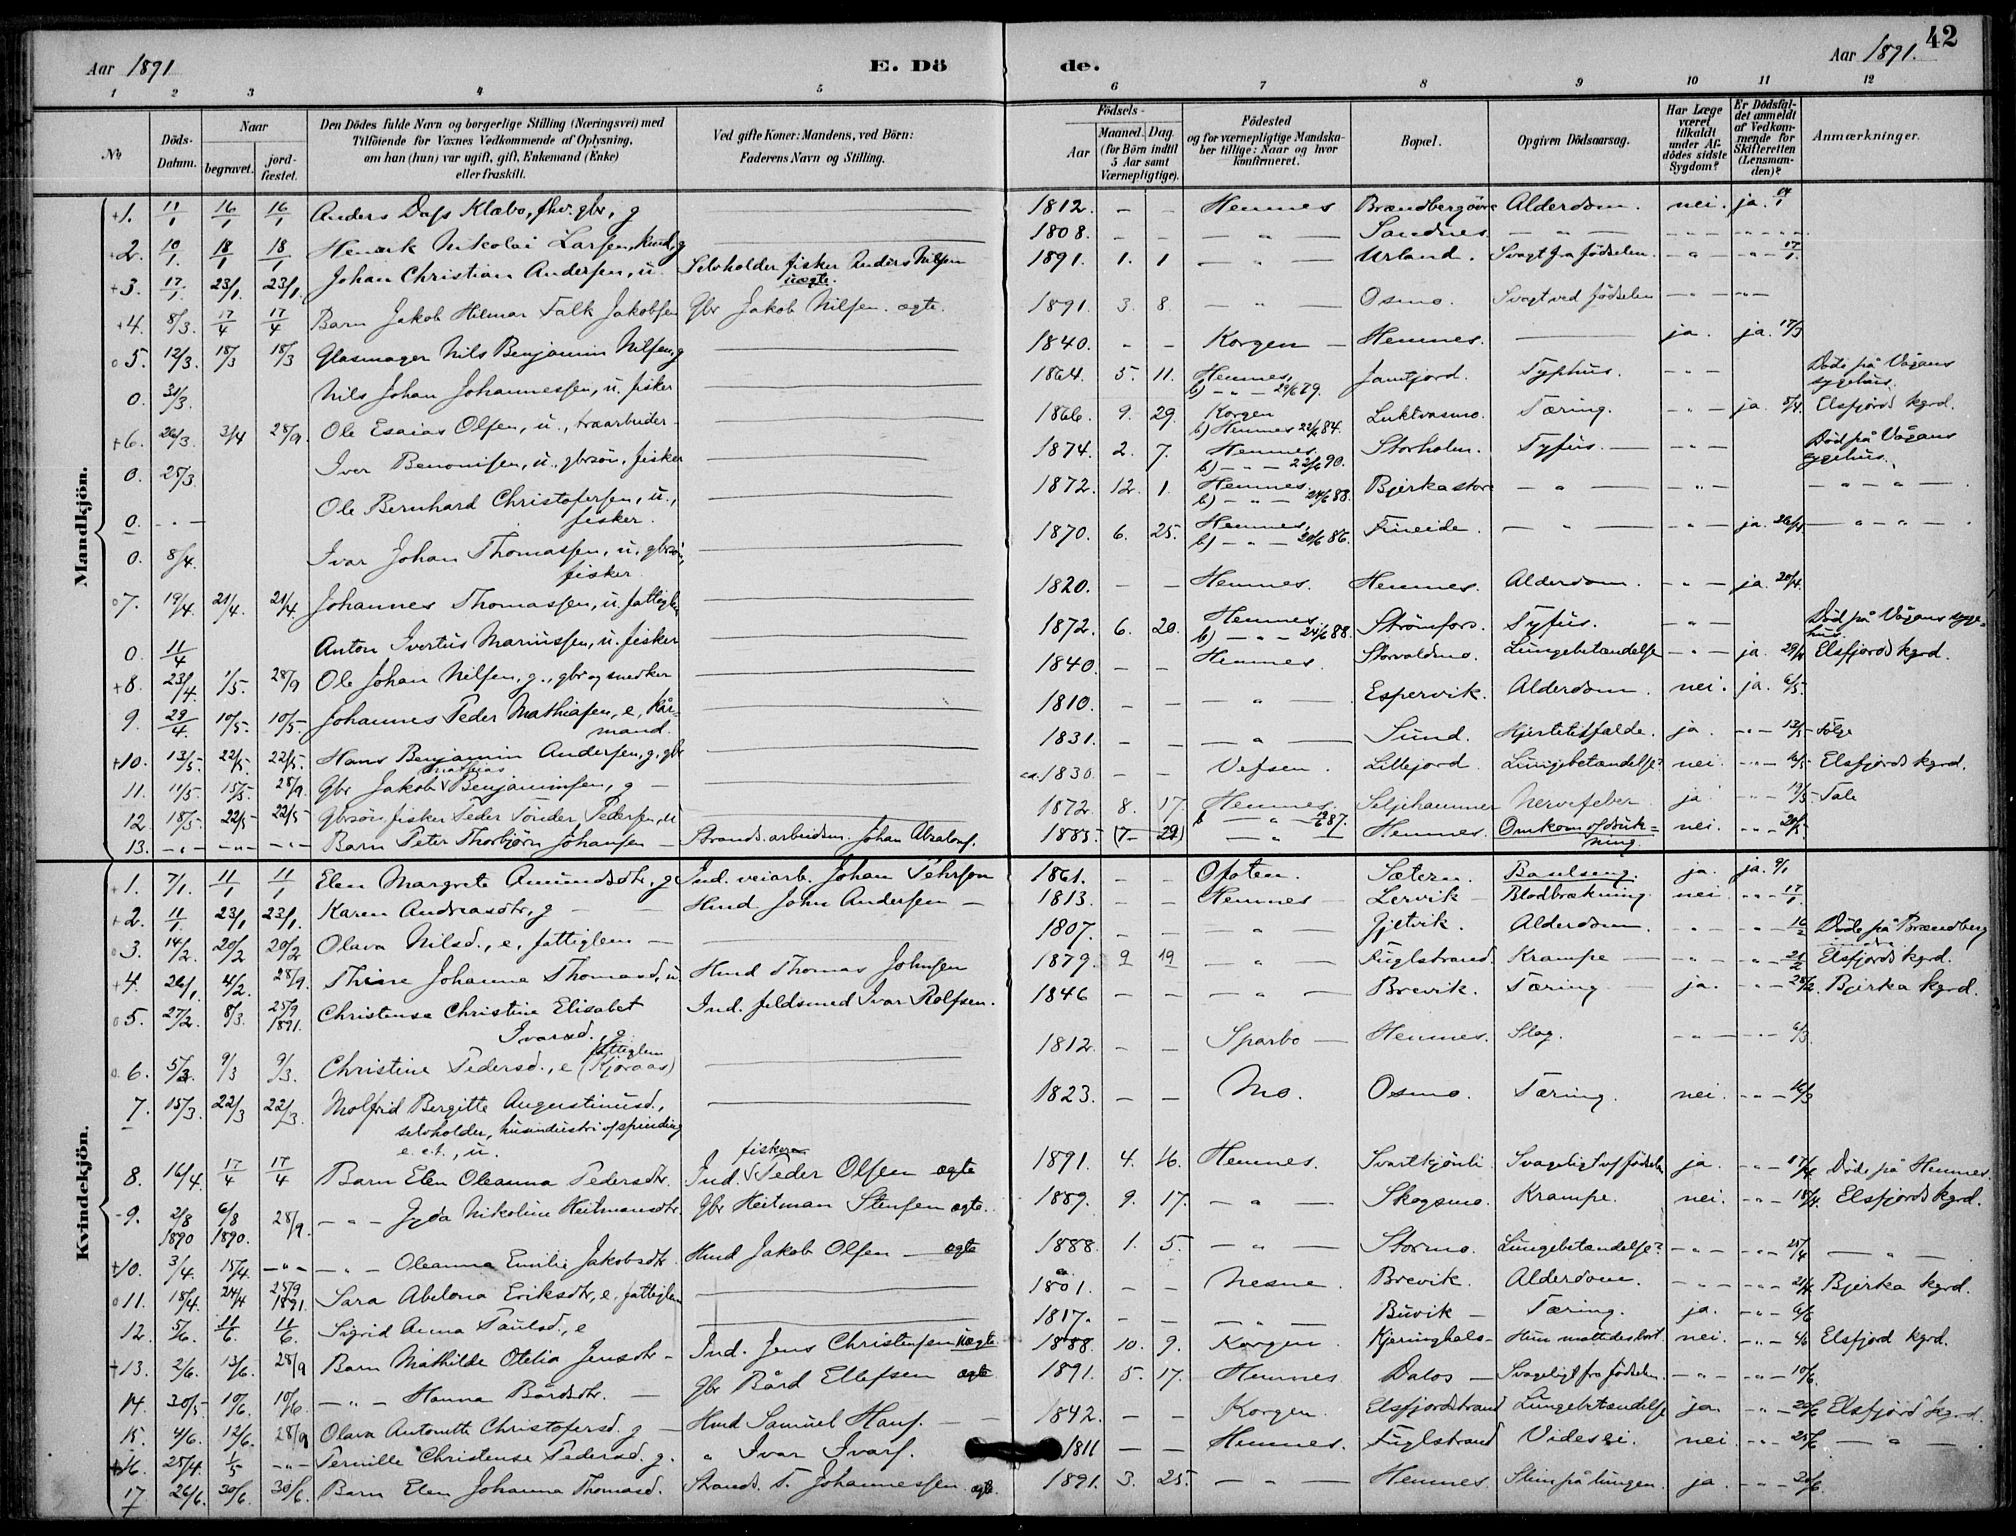 42
Aar 1891
E. Dö
de.
Aar 1891.
1 2 3 4 5 6 7 8 9 10 11 12
No
Döds-Datum.
Naar
begravet.
jord-fæstet.
Den Dödes fulde Navn og borgerlige Stilling (Næringsvei) med
Tilföiende for Voxnes Vedkommende af Oplysning,
om han (hun) var ugift, gift, Enkemand (Enke)
eller fraskilt.
Ved gifte Koner: Mandens, ved Börn:
Faderens Navn og Stilling.
Födsels-
Aar
Maaned. Dag.
(for Börn indtil
5 Aar samt
Værnepligtige).
Födested
og for værnepligtige Mandska-
ber tillige: Naar og hvor
konfirmeret.
Bopæl.
Opgiven Dödsaarsag.
Har Læge
været
tilkaldt
under Af-
dödes sidste
Sygdom?
Er Dödsfal-
det anmeldt
af Vedkom-
mende for
Skifteretten
(Lensman-
den)?
Anmærkninger.
Mandkjön.
+1. 11/1 16/1 16/1 Anders Dass Klæbo, fhv. gbr, g 1812. — — Hemnes Brændbergøvre Alderdom. nei. ja. 14/1
+2. 10/1 18/1 18/1 Henrik Nikolai Larsen, kmd, g 1808. — — — " — Sandnes — " —
+3. 17/1 23/1. 23/1. Johan Christian Andersen, u. Selvholder fisker Anders Nilsen uægte. 1891. 1. 1 — " — Urland. Svagt fra fødselen. — " — 17/1.
+4. 8/3. 17/4 17/4 Barn Jakob Hilmar Falk Jakobsen Gbr Jakob Nilsen. ægte. 1891. 3 8. — " — Osmo. Svagt ved fødselen — " —
o5. 12/3. 18/3 18/3 Glasmager Nils Benjamin Nilsen, g 1840. — — Korgen — Hemnes. ja. ja. 17/3
0. 31/3. Nils Johan Johannessen, u. fisker 1864. 5. 11. Hemnes, b) — " — 29/6 79. Jamtjord. Typhus. — " — Døde på Vågans sygehus.
+6. 26/3. 3/4 28/9. Ole Esaias Olsen, u., træarbeider 1866. 9. 29. Korgen b) Hemnes 22/6 84. Luktvasmo. Tæring. — " — ja. 5/4. Elsfjords kgrd.
0. 25/3. Iver Benonisen, u., gbrsøn, fisker 1874. 2. 7. Hemnes, b) — " — 22/6 90. Storholm. Tyfus. — — " — Død på Vågans sygehus.
0. — " — Ole Bernhard Christofersen, u., fisker. 1872. 12. 1. Hemnes. b) — " — 24/6 88. Bjerkastore — " — — " — — " — " —
0. 8/4. Ivar Johan Thomassen, u., gbrsøn, fisker. 1870. 6. 25. Hemnes, b) — " — 20/6 86. Fineide. — " — — " — ja. — " — " —
o7. 19/4. 21/4. 21/4 Johannes Thomassen, u. fattiglem 1820. — — Hemnes. Hemnes. Alderdom. — " — ja. 20/4.
0. 11/4 Anton Ivertus Mariussen, u. fisker 1872. 6. 20. Hemnes, b) — " — 24/6 88. Strømfors. Tyfus. — " — Død på Vågans syge-hus.
+8. 23/4. 1/5. 28/9 Ole Johan Nilsen, g., gbr og smedker 1840. — — Hemnes. Storvoldmo. Lungebetændelse — " — ja. Elsfjords kgrd.
9. 29/4. 10/5. 10/5. Johannes Peder Mathiasen, e, Kår-mand. 1810. — — — " — Espervik. Alderdom. nei. ja. 6/5.
+10. 13/5. 22/5. 22/5. Hans Benjamin Andersen, g, gbr 1831. — — — " — Sund. Hjertetilfælde. ja. — " — Tolge
11. 11/5. 15/5. 28/9. Gbr Jakob Mathias Benjaminsen, g — ca. 1830. — — Vefsen. Lillejord. Lungebetændelse? nei. — " — Elsfjords kgrd.
12 18/5. 22/5 22/5 Gbrsøn fisker Peder Tønder Pedersen, u 1872. 8. 17. Hemnes. Seljehammer Nervefeber ja — " — 19/5 Tale
13. — " — — " — — " — Barn Peter Thorbjørn Johansen — Strands. arbeidsm. Johan Absalons. 1885. (7— 29) — " — Hemnes. Omkom af drukning nei. — " —
Kvindekjön.
+1. 7/1. 11/1 11/1 Elen Margrete Amundsdtr, g Ind. veiarb. Johan Pehrson 1861. — — Ofoten. Sætern. Barselseng. ja. ja. 9/1
+2. 11/1 23/1 23/1. Karen Andreasdtr, g — Hmd. John Andersen — 1813. — — Hemnes — Lervik — Blodbrækning. nei. — " — 17/1
o3. 14/2. 20/2 20/2 Olava Nilsd., e, fattiglem — 1807. — — — " — Gjetvik. Alderdom. — " — — " — 16/2 Døde på Brændberg
+4. 26/1. 4/2. 28/9. Thine Johanne Thomasd., u Hmd Thomas Johnsen 1879. 9 19 — " — Fuglstrand. Krampe — — " — — " — Elsfjords kgrd.
o5. 27/2. 8/3. 25/9 1891. Christense Christine Elisabet Ivarsd., g Ind. feldsmed Ivar Rolfsen. 1846 — — — " — Brevik. Tæring ja. — " — 28/2. Bjerka kgrd.
o.6. 5/3. 9/3 9/3. Christine Pedersd., e (Kjøraas) fattiglem 1812. — — Sparbo — Hemnes. Slag. — " — — " — 6/3
7. 15/3. 22/3 22/3. Molfrid Bergitte Augustinusd., selvholder, husindustri af spinding e.c.t., u. 1823. — — Mo. Osmo. Tæring. nei. — " — 16/3
8. 16/4. 17/4 17/4 Barn Elen Oleanna Pedersdtr. Ind. fisker Peder Olsen ægte 1891. 4. 16. Hemnes. Svartkjønli Svageligt af fødselen ja. — " — 17/4 Døde på Hemnes.
-9. 2/8 1890 6/8 1890. 28/9. — " — Gyda Nikoline Heitmansdtr Gbr Heitman Stensen ægte. 1889. 9. 17. — " — Skogsmo. Krampe. nei. — " — 18/4. Elsfjords kgrd.
+10. 3/4. 15/4. — " — — " — Oleanna Emilie Jakobsdtr. Hmd Jakob Olsen — ægte 1888. 1. 5. — " — Stormo. Lungebetændelse? — " — — " — 25/4 — " —
o11. 18/4. 24/4 25/9 1891. Sara Abelona Eriksdtr, e. fattiglem 1801. — — Nesne. Brevik. Alderdom. — " — — " — 21/4 Bjerka kgrd.
12. 5/6. 11/6. 11/6. Sigrid Anna Paulsd., e 1817. — — — " — Buvik — Tæring. ja. — " — 6/6
+13. 2/6. 13/6. 28/9 Barn Mathilde Otelia Jensdtr — Ind. Jens Christensen uægte 1888. 10. 9. Korgen. Kjeringhals — nei. — " — 4/6 Elsfjord kgrd.
14. 30/5. 10/6. 10/6. — " — Hanna Bårdsdtr. — Gbr Bård Ellefsen ægte 1891. 5. 17. Hemnes Dalos — Svageligt fra fødselen. — " — — " — 10/6.
15. 4/6. 12/6. 28/9 Olava Antonette Christofersd. g — Hmd Samuel Hans. — 1842. — — Korgen. Elsfjordstrand Lungebetændelse ja. — " — 20/6 Elsfjord kgrd.
+16. 25/4. 1/5 — " — Pernille Christense Pedersd. g. " Ivar Ivars. 1811 — — Hemnes. Fuglstrand Videsei. nei. — " — 25/6 — " —
17 26/6. 30/6. 30/6. Barn Elen Johanna Thomasd. Strands. T. Johannessen ægte. 1891. 3. 25. — " — Hemnes Slim på lungen. ja — " — 20/6